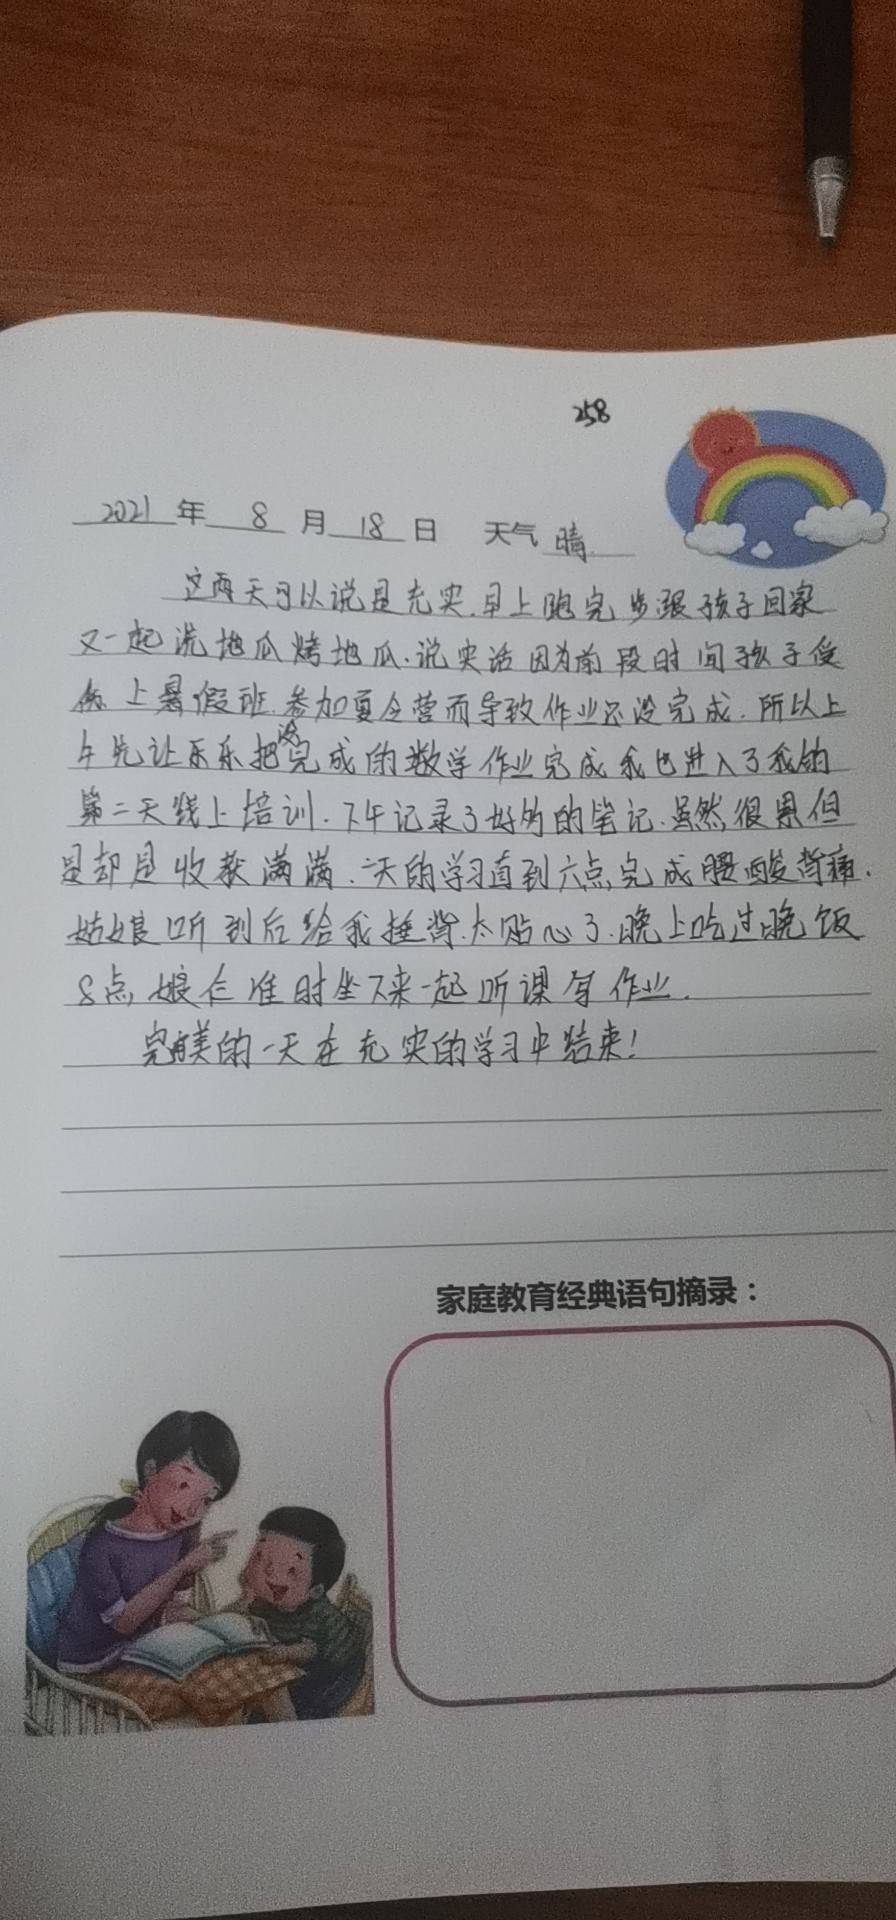 258
2021 年 8 月 18 日 天气 晴
这两天可以说是充实.早上跑完步跟孩子回家
又一起洗地瓜烤地瓜.说实话因为前段时间孩子受
伤 上暑假班.参加夏令营而导致作业还没完成.所以上
午先让乐乐把没完成的数学作业完成我也进入了我的
第二天线上培训.下午记录了好多的笔记.虽然很累但
是却是收获满满.一天的学习直到六点完成腰酸背痛.
姑娘听到后给我捶背.太贴心了.晚上吃过晚饭
8点,娘仨准时坐下来一起听课写作业.
完美的一天在充实的学习中结束!
家庭教育经典语句摘录：